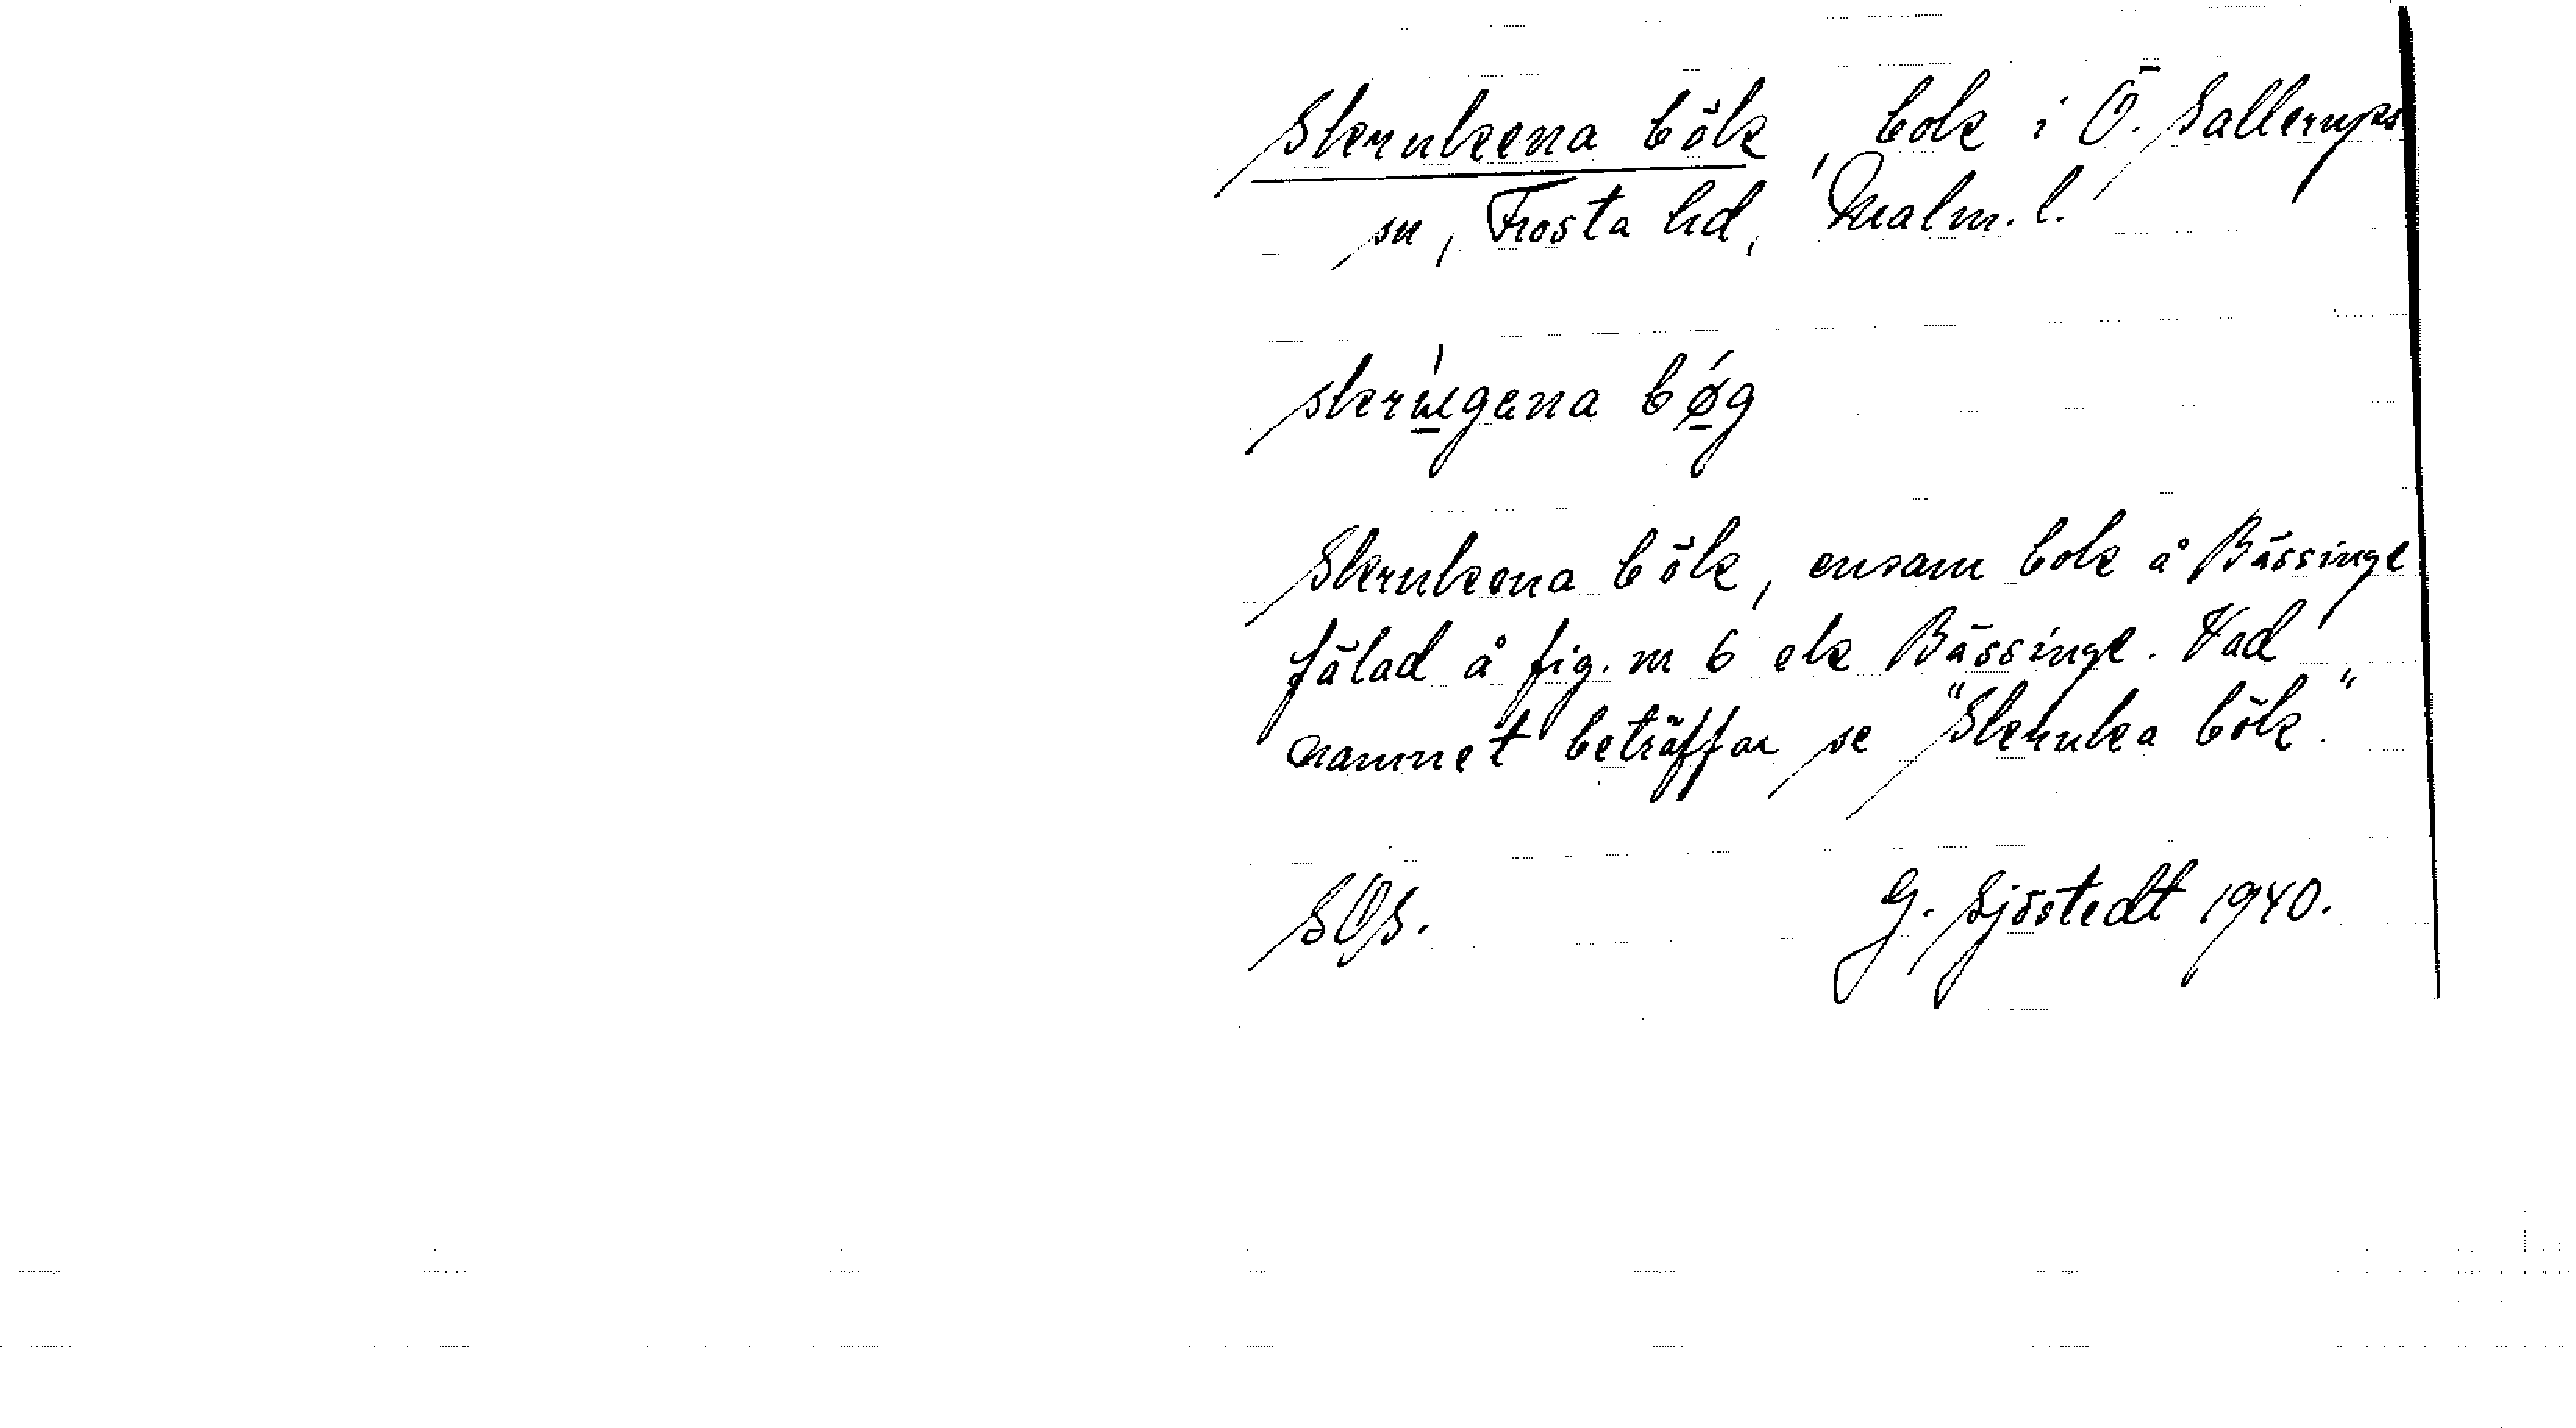 Skrukena bök, bok i Ö. Sallerups
sn, Frosta hd, Malm. l.
skrúgena bǿg
Skrukena bök, ensam bok å Bässinge
fälad å fig. nr 6 ek Bässinge. Vad
namnet beträffar se "Skruka bök."
SOS. G. Sjöstedt 1940.